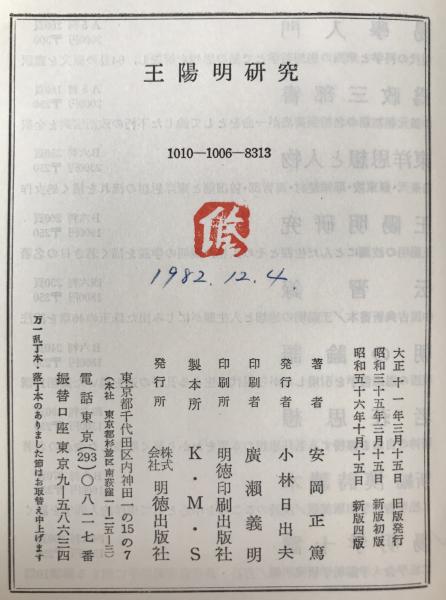 王陽明研究
1010—1006—8313
1982.12.4.
大正十一年三月十五日 旧版発行
昭和三十五年三月十五日 新版初版
昭和五十六年十月十五日 新版四版
著者 安岡正篤
発行者 小林日出夫
印刷者 廣瀬義明
印刷所 明徳印刷出版社
製本所 K・M・S
発行所 株式会社 明徳出版社
東京都千代田区内神田一の15の7
(本社 東京都杉並区南荻窪一—二五—三)
電話東京(293)〇八二一七番
振替口座東京九—五八六三四
万一乱丁本・落丁本のありました節はお取替え申上げます